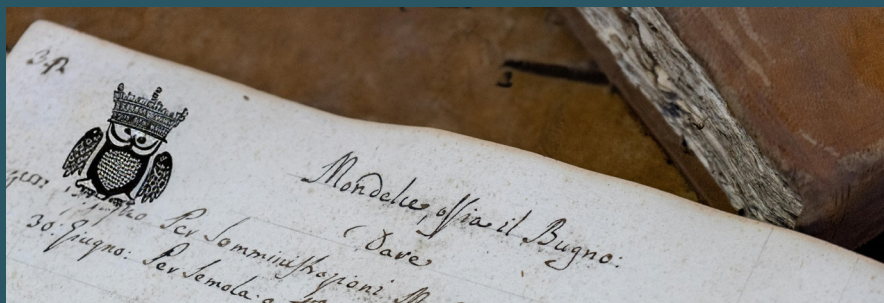 3.
Mondelce, ossia il Bugno:
Dare
Per Somministrazioni
30. Giugno: Per Semola a